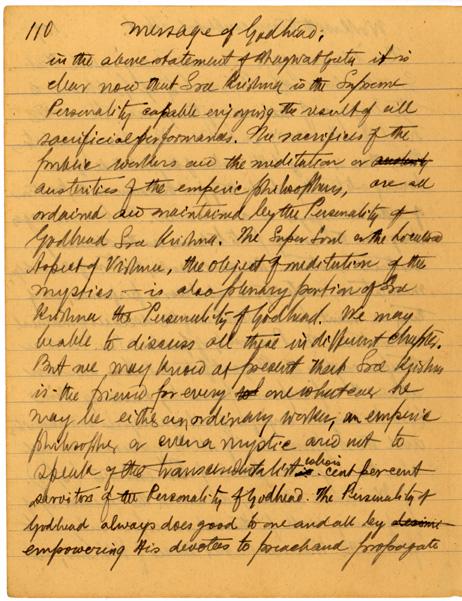 110 Message of Godhead.
in the above statement of Bhagwat Geeta it is
clear now that Sree Krishna is the Supreme
Personality capable enjoying the result of all
sacrificial performances. The sacrifices of the
public workers and the meditation or austerity
austerities of the emperic philosophers, are all
ordained and maintained by the Personality of
Godhead Sree Krishna. The Super Soul or the localised
Aspect of Vishnu, the object of meditation of the
mystics — is also plenary portion of Sree
Krishna the Personality of Godhead. We may
be able to discuss all these in different chapters.
But we may know at present that Sree Krishna
is the friend for every one whatever he
may be either an ordinary worker, an emperic
philosopher or even a mystic and not to
speak of the transcendentalist who is cent per cent
servitors of the Personality of Godhead. The Personality of
Godhead always does good to one and all by
empowering His devotees to preach and propagate